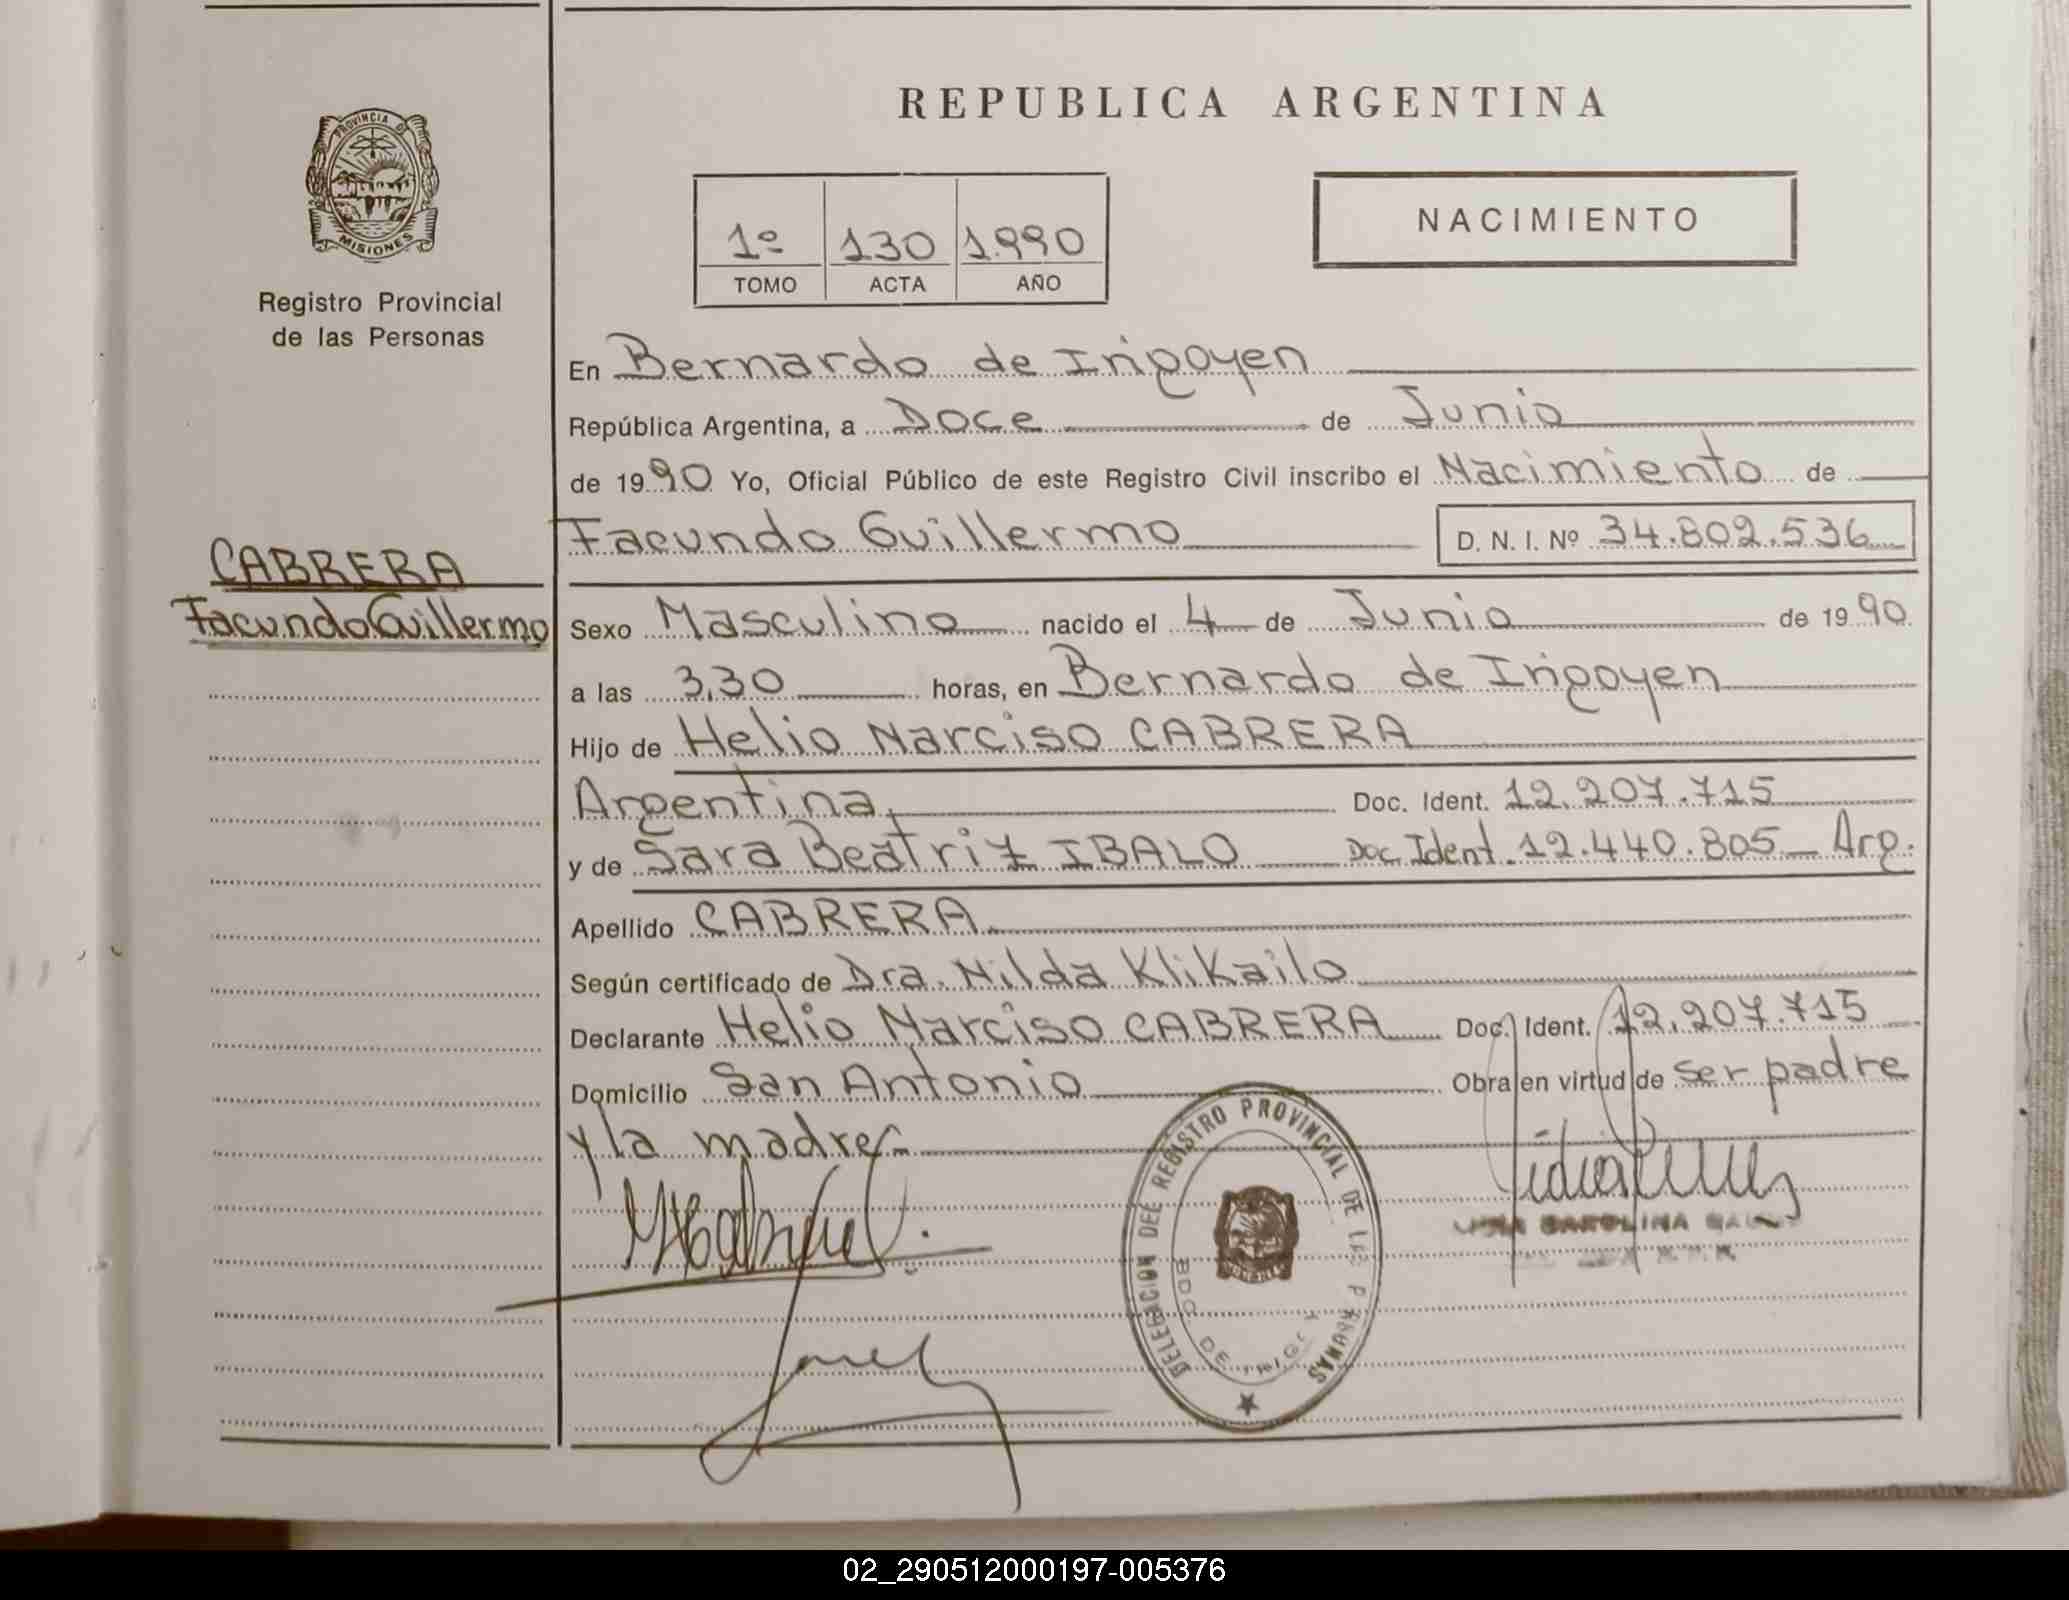 PROVINCIA DE
MISIONES
Registro Provincial
de las Personas
CABRERA
Facundo Guillermo
REPUBLICA ARGENTINA
1º 130 1.990
TOMO ACTA AÑO
NACIMIENTO
En Bernardo de Irigoyen
República Argentina, a Doce de Junio
de 1990 Yo, Oficial Público de este Registro Civil inscribo el Nacimiento de
Facundo Guillermo D. N. I. Nº 34.802.536
Sexo Masculino nacido el 4 de Junio de 1990
a las 3,30 horas, en Bernardo de Irigoyen
Hijo de Helio Narciso CABRERA
Argentina, Doc. Ident. 12.207.715
y de Sara Beatriz IBALO Doc. Ident. 12.440.805 Arg.
Apellido CABRERA
Según certificado de Dra. Nilda Klikailo
Declarante Helio Narciso CABRERA Doc. Ident. 12.207.715
Domicilio San Antonio Obra en virtud de ser padre
y la madre
DELEGACION DEL REGISTRO PROVINCIAL DE LAS PERSONAS
BDO. DE IRIGOY
CAROLINA
02_290512000197-005376